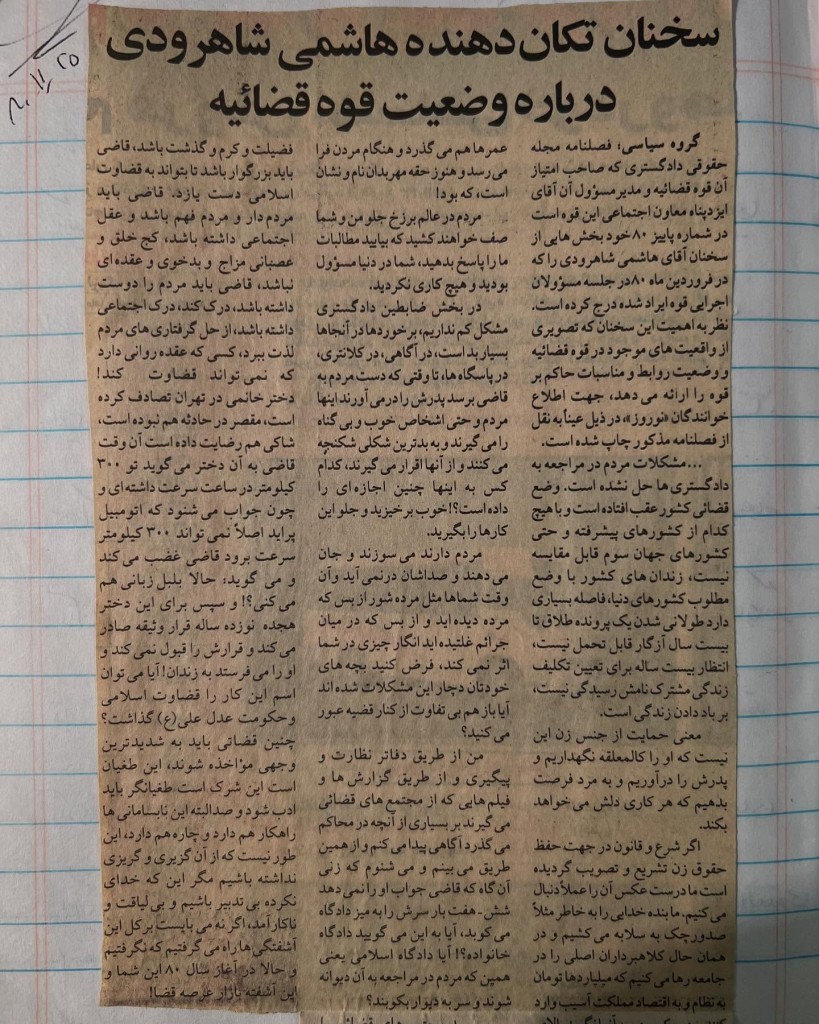 ۸۰/۱۱/۲۵
سخنان تکان‌دهنده هاشمی شاهرودی
درباره وضعیت قوه قضائیه
گروه سیاسی: فصلنامه مجله
حقوقی دادگستری که صاحب امتیاز
آن قوه قضائیه و مدیر مسؤول آن آقای
ایزدپناه معاون اجتماعی این قوه است
در شماره پاییز ۸۰ خود بخش هایی از
سخنان آقای هاشمی شاهرودی را که
در فروردین ماه ۸۰ در جلسه مسؤولان
اجرایی قوه ایراد شده درج کرده است.
نظر به اهمیت این سخنان که تصویری
از واقعیت های موجود در قوه قضائیه
و وضعیت روابط و مناسبات حاکم بر
قوه را ارائه می دهد، جهت اطلاع
خوانندگان «نوروز»، در ذیل عیناً به نقل
از فصلنامه مذکور چاپ شده است.
...مشکلات مردم در مراجعه به
دادگستری ها حل نشده است. وضع
قضائی کشور عقب افتاده است و با هیچ
کدام از کشورهای پیشرفته و حتی
کشورهای جهان سوم قابل مقایسه
نیست، زندان های کشور با وضع
مطلوب کشورهای دنیا، فاصله بسیاری
دارد طولانی شدن یک پرونده طلاق تا
بیست سال آزگار قابل تحمل نیست،
انتظار بیست ساله برای تعیین تکلیف
زندگی مشترک نامش رسیدگی نیست،
بر باد دادن زندگی است.
معنی حمایت از جنس زن این
نیست که او را کالمعلقه نگهداریم و
پدرش را درآوریم و به مرد فرصت
بدهیم که هر کاری دلش می خواهد
بکند.
اگر شرع و قانون در جهت حفظ
حقوق زن تشریع و تصویب گردیده
است ما درست عکس آن را عملاً دنبال
می کنیم. ما بنده خدایی را به خاطر مثلاً
صدور چک به سلابه می کشیم و در
همان حال کلاهبرداران اصلی را در
جامعه رها می کنیم که میلیاردها تومان
به نظام و به اقتصاد مملکت آسیب وارد
عمرها هم می گذرد و هنگام مردن فرا
می رسد و هنوز حقه مهر بدان نام و نشان
است، که بود!
مردم در عالم برزخ جلو من و شما
صف خواهند کشید که بیایید مطالبات
ما را پاسخ بدهید، شما در دنیا مسؤول
بودید و هیچ کاری نکردید.
در بخش ضابطین دادگستری
مشکل کم نداریم، برخوردها در آنجاها
بسیار بد است، در آگاهی، در کلانتری،
در پاسگاه ها، تا وقتی که دست مردم به
قاضی برسد پدرش را در می آورند اینها
مردم و حتی اشخاص خوب و بی گناه
را می گیرند و به بدترین شکلی شکنجه
می کنند و از آنها اقرار می گیرند، کدام
کس به اینها چنین اجازه ای را
داده است؟! خوب برخیزید و جلو این
کارها را بگیرید.
مردم دارند می سوزند و جان
می دهند و صداشان درنمی آید و آن
وقت شماها مثل مرده شور از بس که
مرده دیده اید و از بس که در میان
جرائم غلتیده اید انگار چیزی در شما
اثر نمی کند، فرض کنید بچه های
خودتان دچار این مشکلات شده اند
آیا باز هم بی تفاوت از کنار قضیه عبور
می کنید؟
من از طریق دفاتر نظارت و
پیگیری و از طریق گزارش ها و
فیلم هایی که از مجتمع های قضائی
می گیرند بر بسیاری از آنچه در محاکم
می گذرد آگاهی پیدا می کنم و از همین
طریق می بینم و می شنوم که زنی
آن گاه که قاضی جواب او را نمی دهد
شش - هفت بار سرش را به میز دادگاه
می کوبد، آیا به این می گویید دادگاه
خانواده؟! آیا دادگاه اسلامی یعنی
همین که مردم در مراجعه به آن دیوانه
شوند و سر به دیوار بکوبند؟
فضیلت و کرم و گذشت باشد، قاضی
باید بزرگوار باشد تا بتواند به قضاوت
اسلامی دست یازد. قاضی باید
مردم دار و مردم فهم باشد و عقل
اجتماعی داشته باشد، کج خلق و
عصبانی مزاج و بدخوی و عقده ای
نباشد، قاضی باید مردم را دوست
داشته باشد، درک کند، درک اجتماعی
داشته باشد، از حل گرفتاری های مردم
لذت ببرد، کسی که عقده روانی دارد
که نمی تواند قضاوت کند!
دختر خانمی در تهران تصادف کرده
است، مقصر در حادثه هم نبوده است،
شاکی هم رضایت داده است آن وقت
قاضی به آن دختر می گوید تو ۳۰۰
کیلومتر در ساعت سرعت داشته ای و
چون جواب می شنود که اتومبیل
پراید اصلاً نمی تواند ۳۰۰ کیلومتر
سرعت برود قاضی غضب می کند
و می گوید: حالا بلبل زبانی هم
می کنی؟! و سپس برای این دختر
هجده نوزده ساله قرار وثیقه صادر
می کند و قرارش را قبول نمی کند و
او را می فرستد به زندان! آیا می توان
اسم این کار را قضاوت اسلامی
و حکومت عدل علی(ع) گذاشت؟
چنین قضاتی باید به شدیدترین
وجهی مؤاخذه شوند، این طغیان
است این شرک است طغیانگر باید
ادب شود و صد البته این نابسامانی ها
راهکار هم دارد و چاره هم دارد، این
طور نیست که از آن گزیری و گریزی
نداشته باشیم مگر این که خدای
نکرده بی تدبیر باشیم و بی لیاقت و
ناکارآمد، اگر نه می بایست بر کل این
آشفتگی ها راه می گرفتیم که نگرفتیم
و حالا در آغاز سال ۸۰ این شما و
این آشفته بازار عرصه قضا!